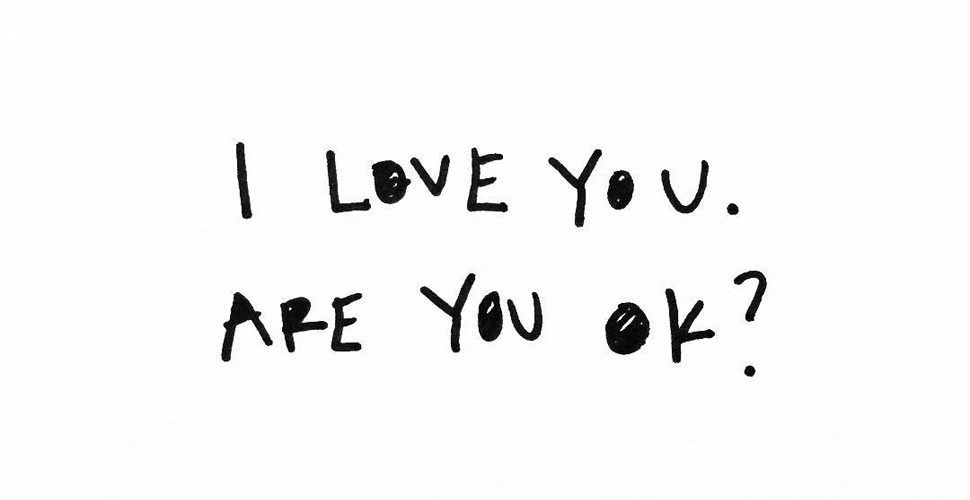 I LOVE YOU.
ARE YOU OK?